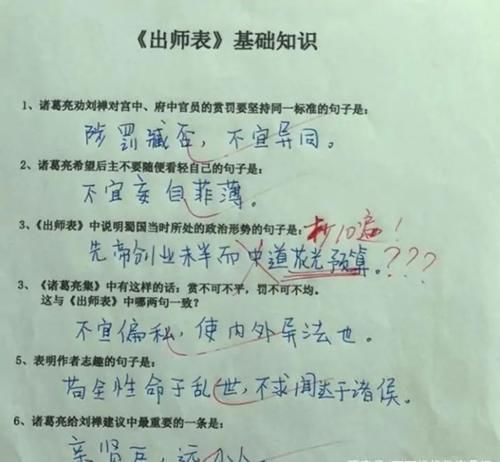 《出师表》基础知识
1、诸葛亮劝刘禅对宫中、府中官员的赏罚要坚持同一标准的句子是：
陟罚臧否，不宜异同。
2、诸葛亮希望后主不要随便看轻自己的句子是：
不宜妄自菲薄。
3、《出师表》中说明蜀国当时所处的政治形势的句子是：
抄10遍！
先帝创业未半而中道花光预算。???
3、《诸葛亮集》中有这样的话：赏不可不平，罚不可不均。
这与《出师表》中哪两句一致？
不宜偏私，使内外异法也。
5、表明作者志趣的句子是：
苟全性命于乱世，不求闻达于诸侯。
6、诸葛亮给刘禅建议中最重要的一条是：
亲贤臣，远小人